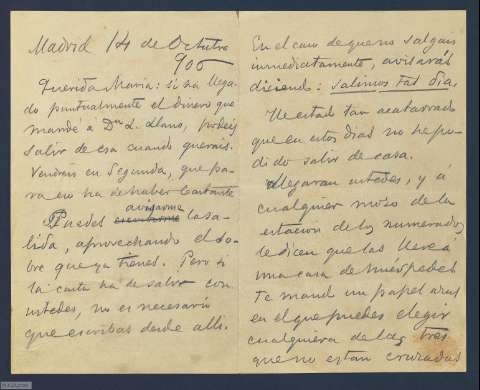 Madrid 14 de Octubre
905
Querida Maria: si ha llega-
do puntualmente el dinero que
mandé á Dn L. Llano, podeis
salir de esa cuando querais.
Vendreis en Segunda, que pa-
ra eso ha de haber bastante
avisarme
Puedes escribirme la sa-
lida, aprovechando el so-
bre que ya tienes. Pero si
la carta ha de salir con
ustedes, no es necesario
que escribas desde alli.
En el caso de que no salgais
inmediatamente, avisarás
diciendo: salimos tal dia.
He estado tan acatarrado
que en estos dias no he po-
dido salir de casa.
Llegaran ustedes, y á
cualquier mozo de la
estacion de los numerados
le dicen que las lleve á
una casa de huéspedes
Te mando un papel
en el que puedes elegir
cualquiera de las tres
que no estan cruzadas